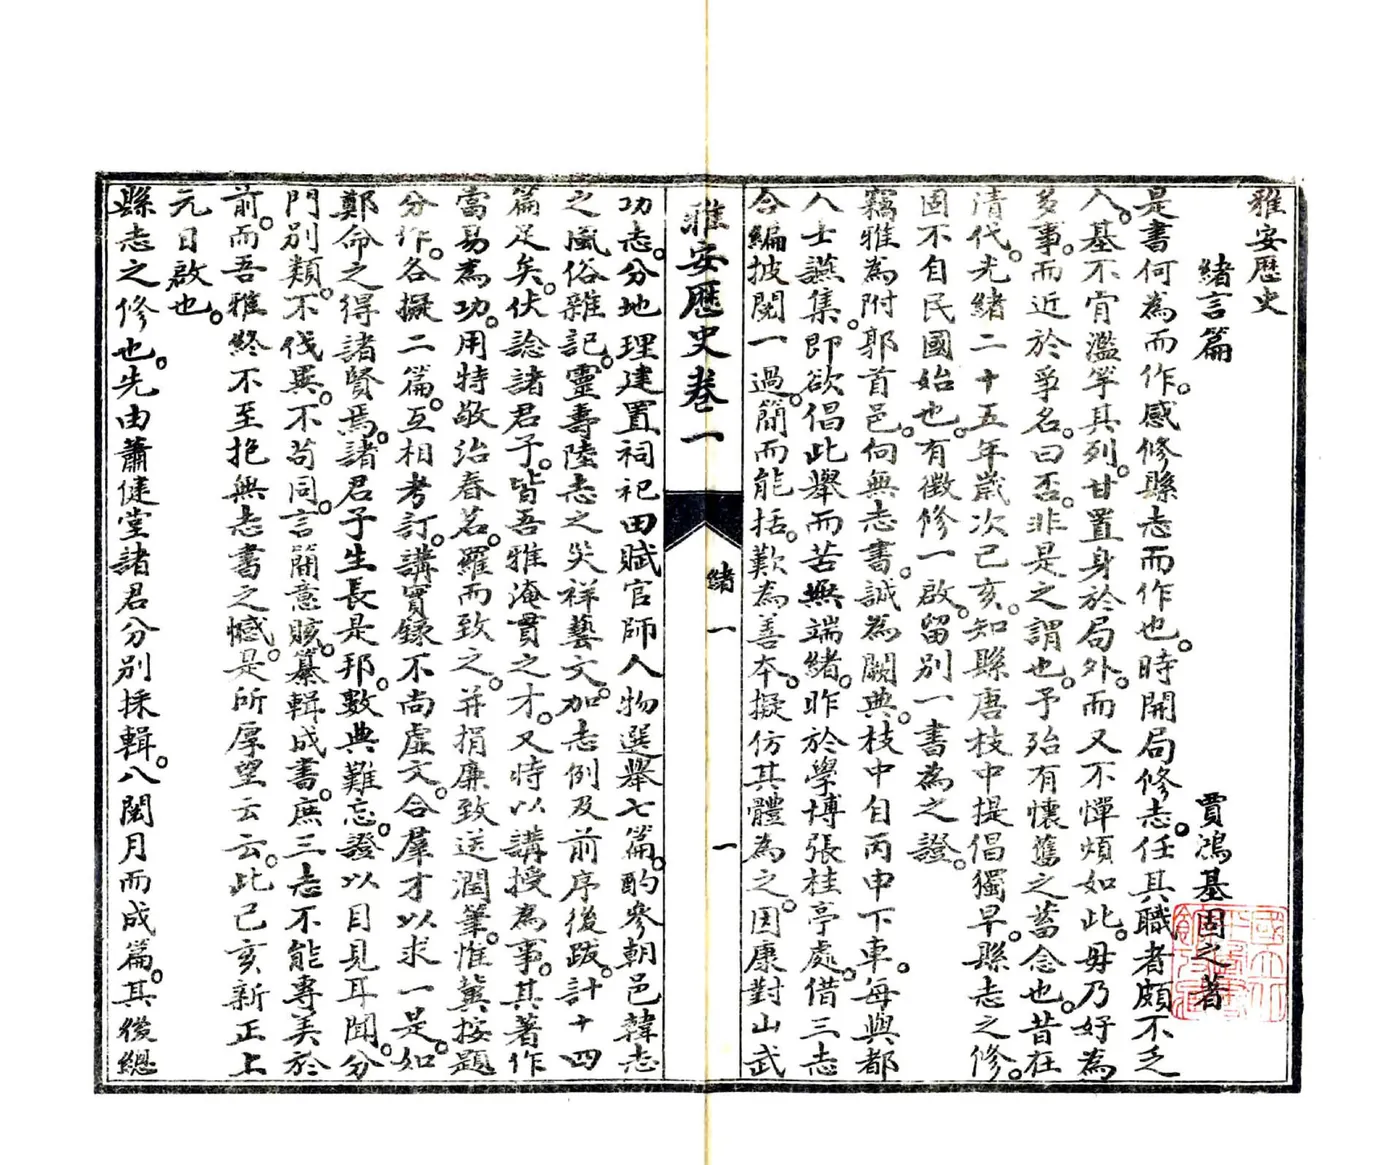 雅安歷史
緒言篇
賈鴻基固之著
是書何為而作。感修縣志而作也。時開局修志。任其職者頗不乏
人。基不肯濫竽其列。甘置身於局外。而又不憚煩如此。毋乃好為
多事。而近於爭名。曰否。非是之謂也。予殆有懷舊之蓄念也。昔在
清代。光緒二十五年歲次己亥。知縣唐枝中提倡獨早。縣志之修。
固不自民國始也。有徵修一啟。留別一書為之證。
竊雅為附郭首邑。向無志書。誠為闕典。枝中自丙申下車。每與都
人士讌集。即欲倡此舉而苦無端緒。昨於學博張桂亭處。借三志
合編披閱一過。簡而能括。歎為善本。擬仿其體為之。因康對山武
雅安歷史卷一
緒一
一
功志。分地理建置祠祀田賦官師人物選舉七篇。酌參朝邑韓志
之風俗雜記。靈壽陸志之災祥藝文。加志例及前序後跋。計十四
篇足矣。伏諗諸君子。皆吾雅淹貫之才。又時以講授為事。其著作
當易為功。用特敬治春茗。羅而致之。并捐廉致送潤筆。惟冀按題
分作。各擬二篇。互相考訂。講實錄不尚虛文。合羣才以求一是。如
鄭命之得諸賢焉。諸君子生長是邦。數典難忘。證以目見耳聞。分
門別類。不伐異。不苟同。言簡意賅。纂輯成書。庶三志不能專美於
前。而吾雅終不至抱無志書之憾。是所厚望云云。此己亥新正上
元日啟也。
縣志之修也。先由蕭健堂諸君分別採輯。八閱月而成篇。其後總